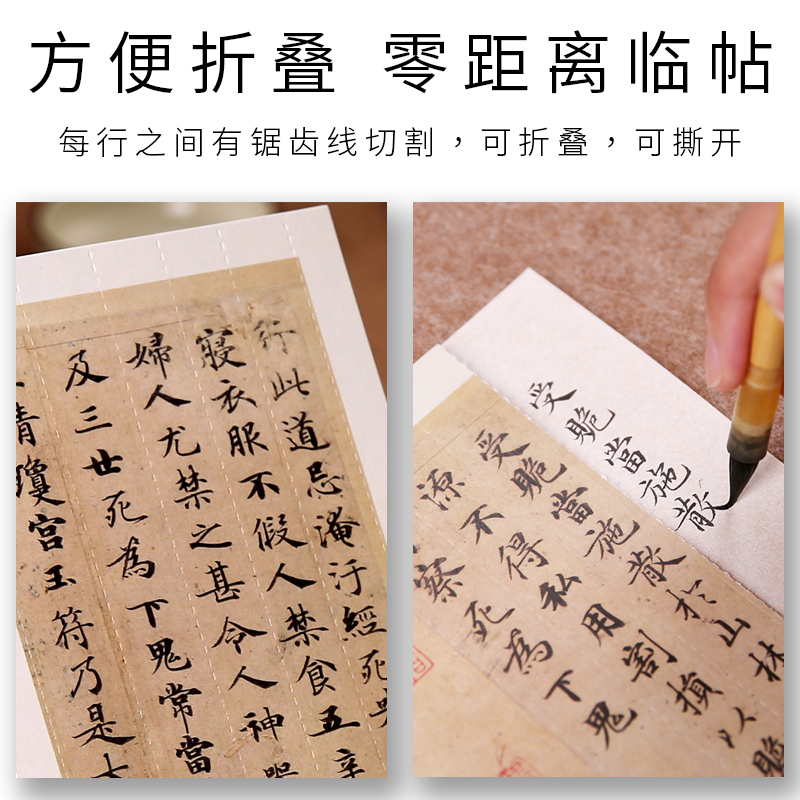 方便折叠 零距离临帖
每行之间有锯齿线切割，可折叠，可撕开
行此道忌淹汙經死
寢衣服不假人禁食五辛
婦人尤禁之甚令人神
及三世死為下鬼常當
清瓊宮玉符乃是
受賍當施散
受賍當施散於山林
不得私用割損以
察死為下鬼